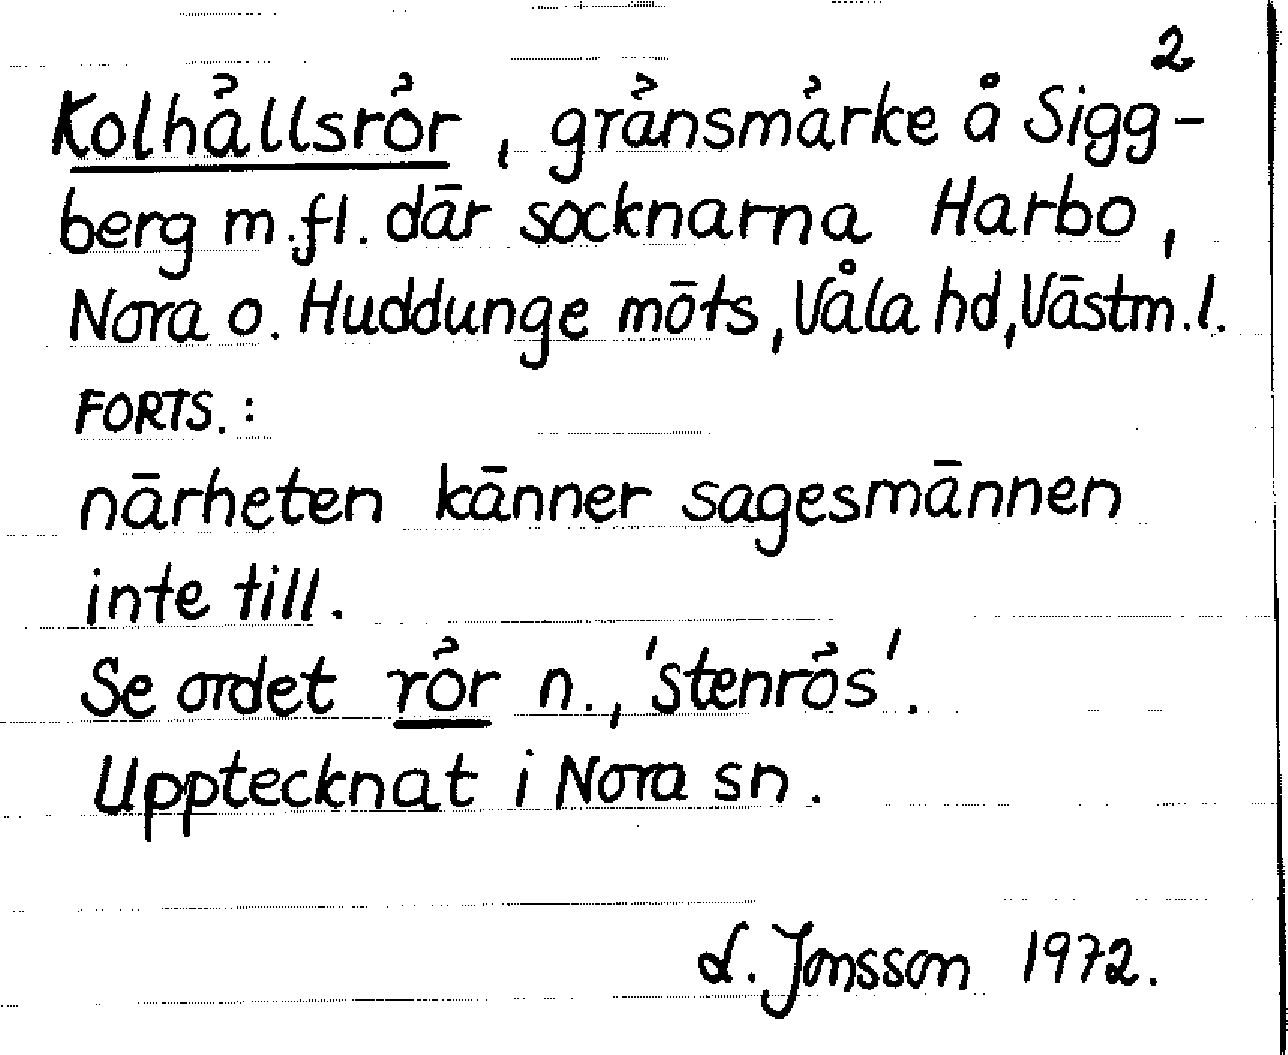 2
Kolhällsrör, gränsmärke å Sigg-
berg m.fl. där socknarna Harbo,
Nora o. Huddunge möts, Våla hd, Västm.l.
FORTS.:
närheten känner sagesmännen
inte till.
Se ordet rör n., 'stenrös'.
Upptecknat i Nora sn.
L. Jonsson 1972.